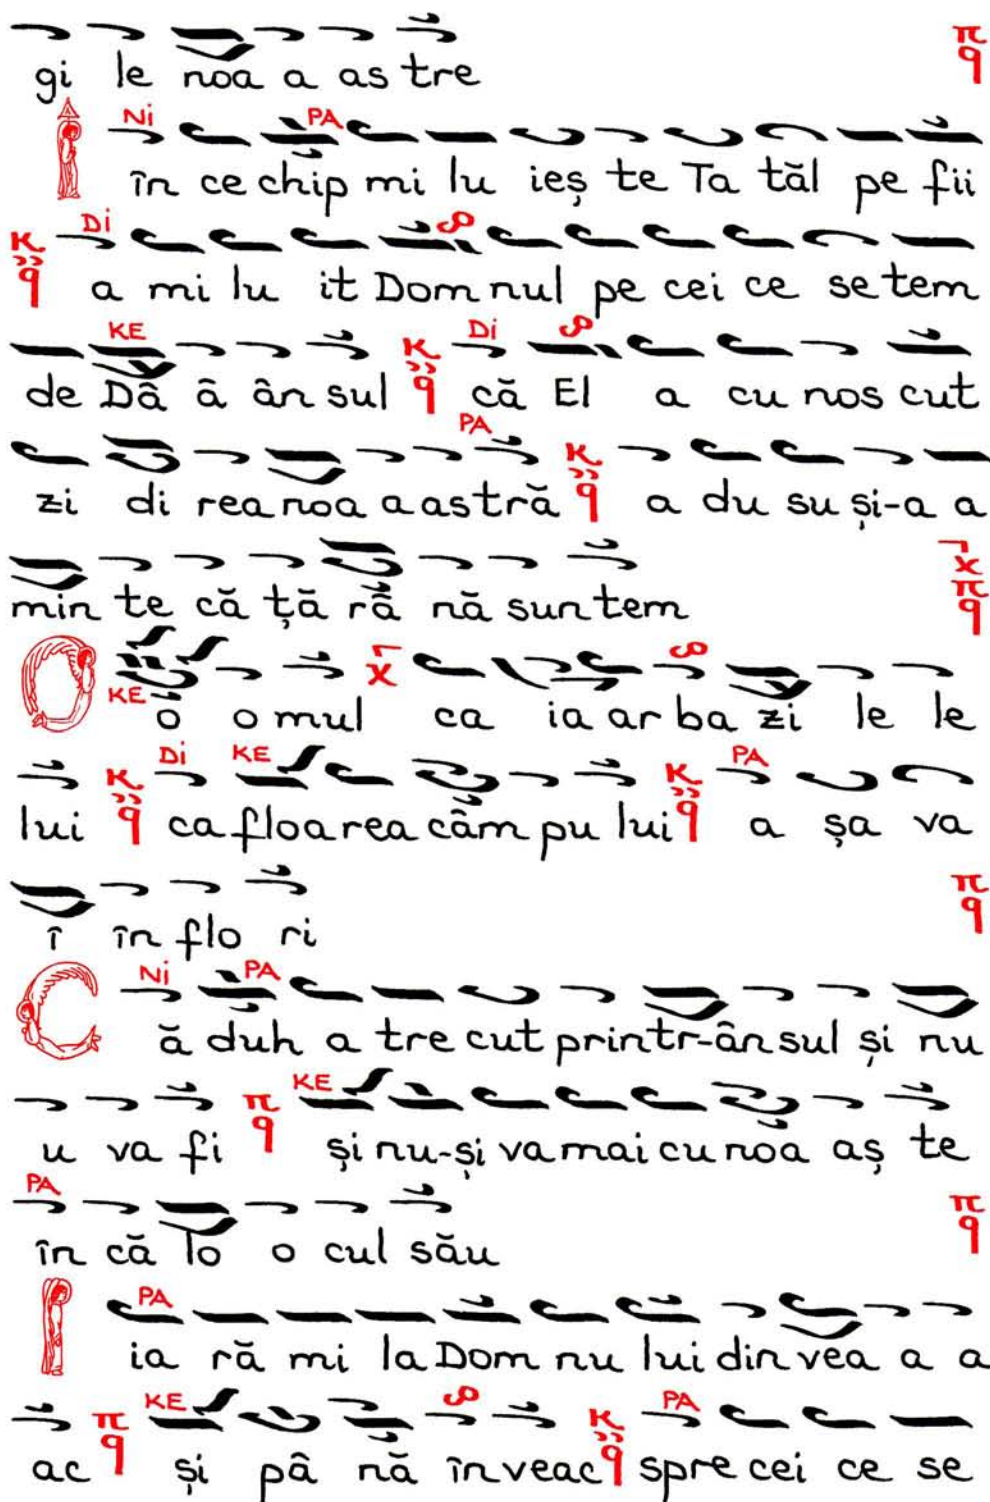 gi le noa a as tre π q
Ni PA
în ce chip mi lu ieș te Ta tăl pe fii
Di
K q a mi lu it Dom nul pe cei ce se tem
KE Di
de Dâ â ân sul K q că El a cu nos cut
PA
zi di rea noa a as tră K q a du su și-a a
min te că ță râ nă sun tem x π q
KE O o o mul x ca ia ar ba zi le le
Di KE PA
lui K q ca floa rea câm pu lui K q a șa va
î în flo ri π q
Ni PA
C ă duh a tre cut printr-ân sul și nu
KE
u va fi π q și nu-și va mai cu noa aș te
PA
în că lo o cul său π q
PA
ia ră mi la Dom nu lui din vea a a
KE PA
ac π q și pâ nă în veac K q spre cei ce se